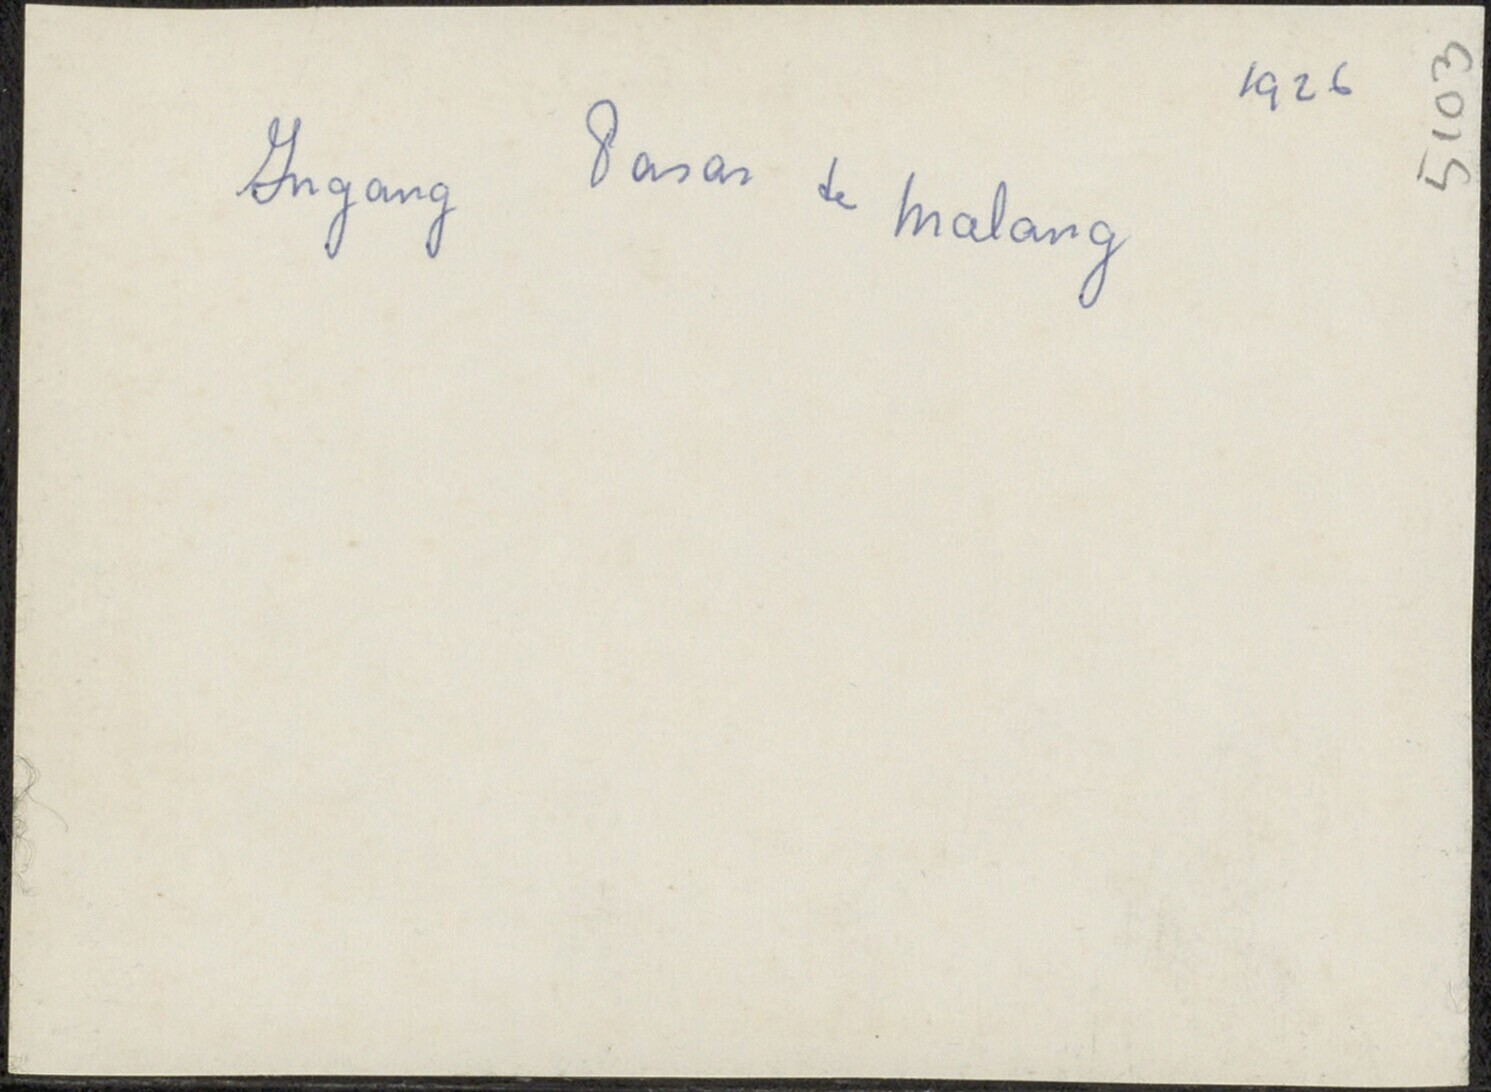 1926
5103
Ingang Pasar te Malang